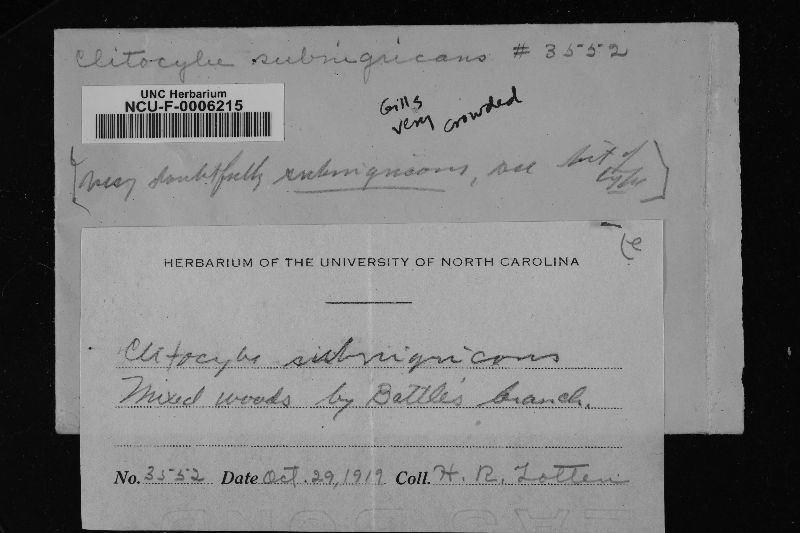 Clitocybe subnigricans # 3552
UNC Herbarium
NCU-F-0006215
Gills
very crowded
[Very doubtfully subnigricans, see bit of
type]
HERBARIUM OF THE UNIVERSITY OF NORTH CAROLINA
Clitocybe subnigricans
Mixed woods by Battle's branch.
No. 3552 Date Oct. 29, 1919 Coll. H. R. Totten